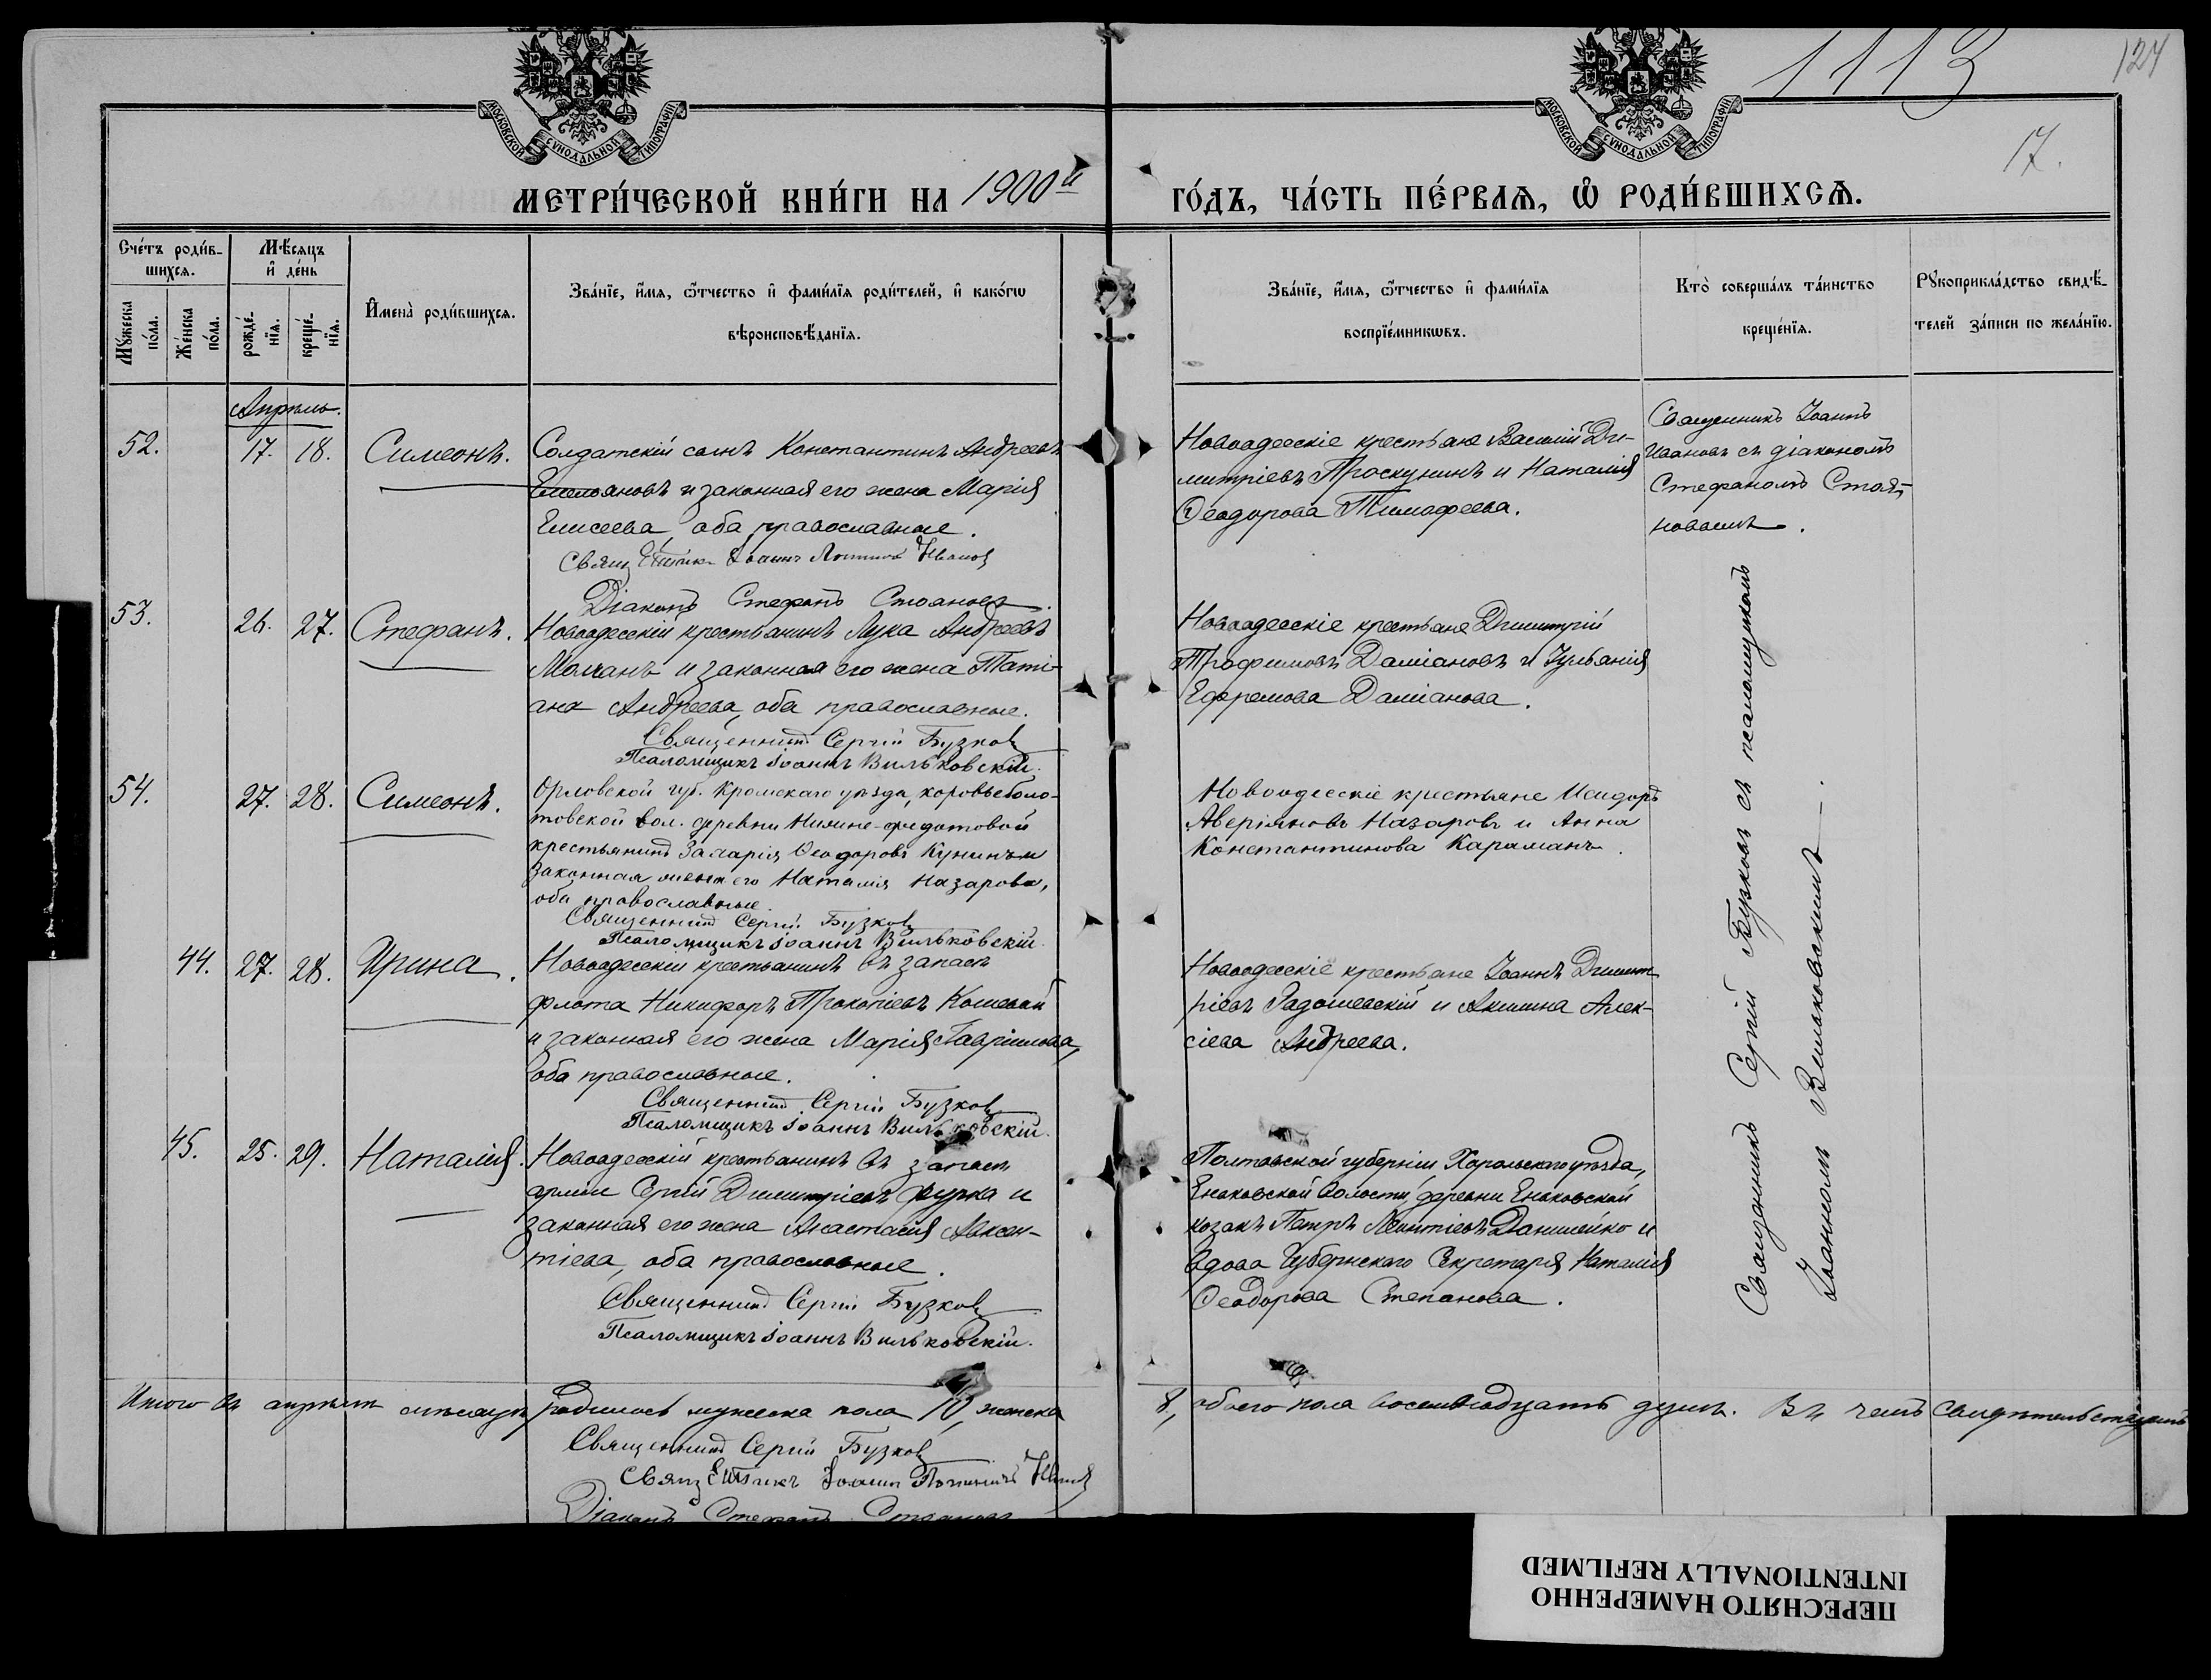 1113
124
17.
МОСКОВСКОЙ СѴНОДАЛЬНОЙ ТИПОГРАФІИ
МОСКОВСКОЙ СѴНОДАЛЬНОЙ ТИПОГРАФІИ
МЕТРИ́ЧЕСКОЙ КНИ́ГИ НА 1900й ГО́ДЪ, ЧА́СТЬ ПЕ́РВАЯ, Ѡ РОДИ́ВШИХСЯ.
Сче́тъ роди́в-
шихся.
Мѣ́сяцъ
и҆ де́нь
Мꙋ́жеска по́ла.
Же́нска по́ла.
рожде́-нїя.
креще́-нїя.
И҆мена̀ роди́вшихся.
Зва́нїе, и҆́мя, ѻ҆́тчество и҆ фами́лїя роди́телей, и҆ како́гѡ
вѣроисповѣ́данїя.
Зва́нїе, и҆́мя, ѻ҆́тчество и҆ фами́лїя
воспрїе́мникѡвъ.
Кто̀ соверша́лъ та́инство
креще́нїя.
Рꙋкоприкла́дство свидѣ́-
телей за́писи по жела́нїю.
Апрѣль.
52. 17. 18. Симеонъ.
Солдатскій сынъ Константинъ Андреевъ
Емельяновъ и законная его жена Марія
Елисеева, оба православные.
Свящ Іоаннъ Иванов
Діаконъ Стефанъ Стояновъ.
Новоодесскіе крестьяне Василій Ди-
митріевъ Проскунинъ и Наталія
Ѳеодорова Тимофеева.
Священникъ Іоаннъ
Ивановъ съ діакономъ
Стефаномъ Стоя-
новымъ.
53. 26. 27. Стефанъ.
Новоодесскій крестьянинъ Лука Андреевъ
Молчанъ и законная его жена Тати-
ана Андреева, оба православные.
Священникъ Сергій Бузков
Псаломщикъ Іоаннъ Вильковскій.
Новоодесскіе крестьяне Димитрій
Трофимовъ Даміановъ и Іуліанія
Ефремова Даміанова.
54. 27. 28. Симеонъ.
Орловской губ. Кромскаго уѣзда, коровьеболо-
товской вол. деревни Нижне-Федотовой
крестьянинъ Захарія Ѳеодоровъ Кунинъ и
законная жена его Наталія Назарова,
оба православные.
Священникъ Сергій Бузков
Псаломщикъ Іоаннъ Вильковскій.
Новоодесскіе крестьяне Исидоръ
Аверіяновъ Назаровъ и Анна
Константинова Караманъ.
44. 27. 28. Ирина.
Новоодесскій крестьянинъ въ запасѣ
флота Никифоръ Прокопіевъ Кошевой
и законная его жена Марія Гавріилова,
оба православные.
Священникъ Сергій Бузков
Псаломщикъ Іоаннъ Вильковскій.
Новоодесскіе крестьяне Іоаннъ Димит-
ріевъ Радошевскій и Акилина Алек-
сіева Андреева.
45. 25. 29. Наталія.
Новоодесскій крестьянинъ въ запасѣ
арміи Сергій Димитріевъ Фурка и
законная его жена Анастасія Авксен-
тіева, оба православные.
Священникъ Сергій Бузков
Псаломщикъ Іоаннъ Вильковскій.
Полтавской губерніи, Хорольскаго уѣзда,
Еньковской волости, деревни Еньковской
козакъ Петръ Леонтіевъ Данилейко и
вдова Губернскаго Секретаря Наталія
Ѳеодорова Степанова.
Священникъ Сергій Бузковъ съ псаломщикомъ
Іоанномъ Вильковскимъ.
Итого въ апрѣлѣ мѣсяцѣ родилось мужеска пола 10, женска 8, обоего пола восемнадцать душъ. Въ чемъ свидѣтельствуемъ
Священникъ Сергій Бузков
Свящ Іоаннъ
Діаконъ Стефанъ Стояновъ
ПЕРЕСНЯТО НАМЕРЕННО
INTENTIONALLY REFILMED